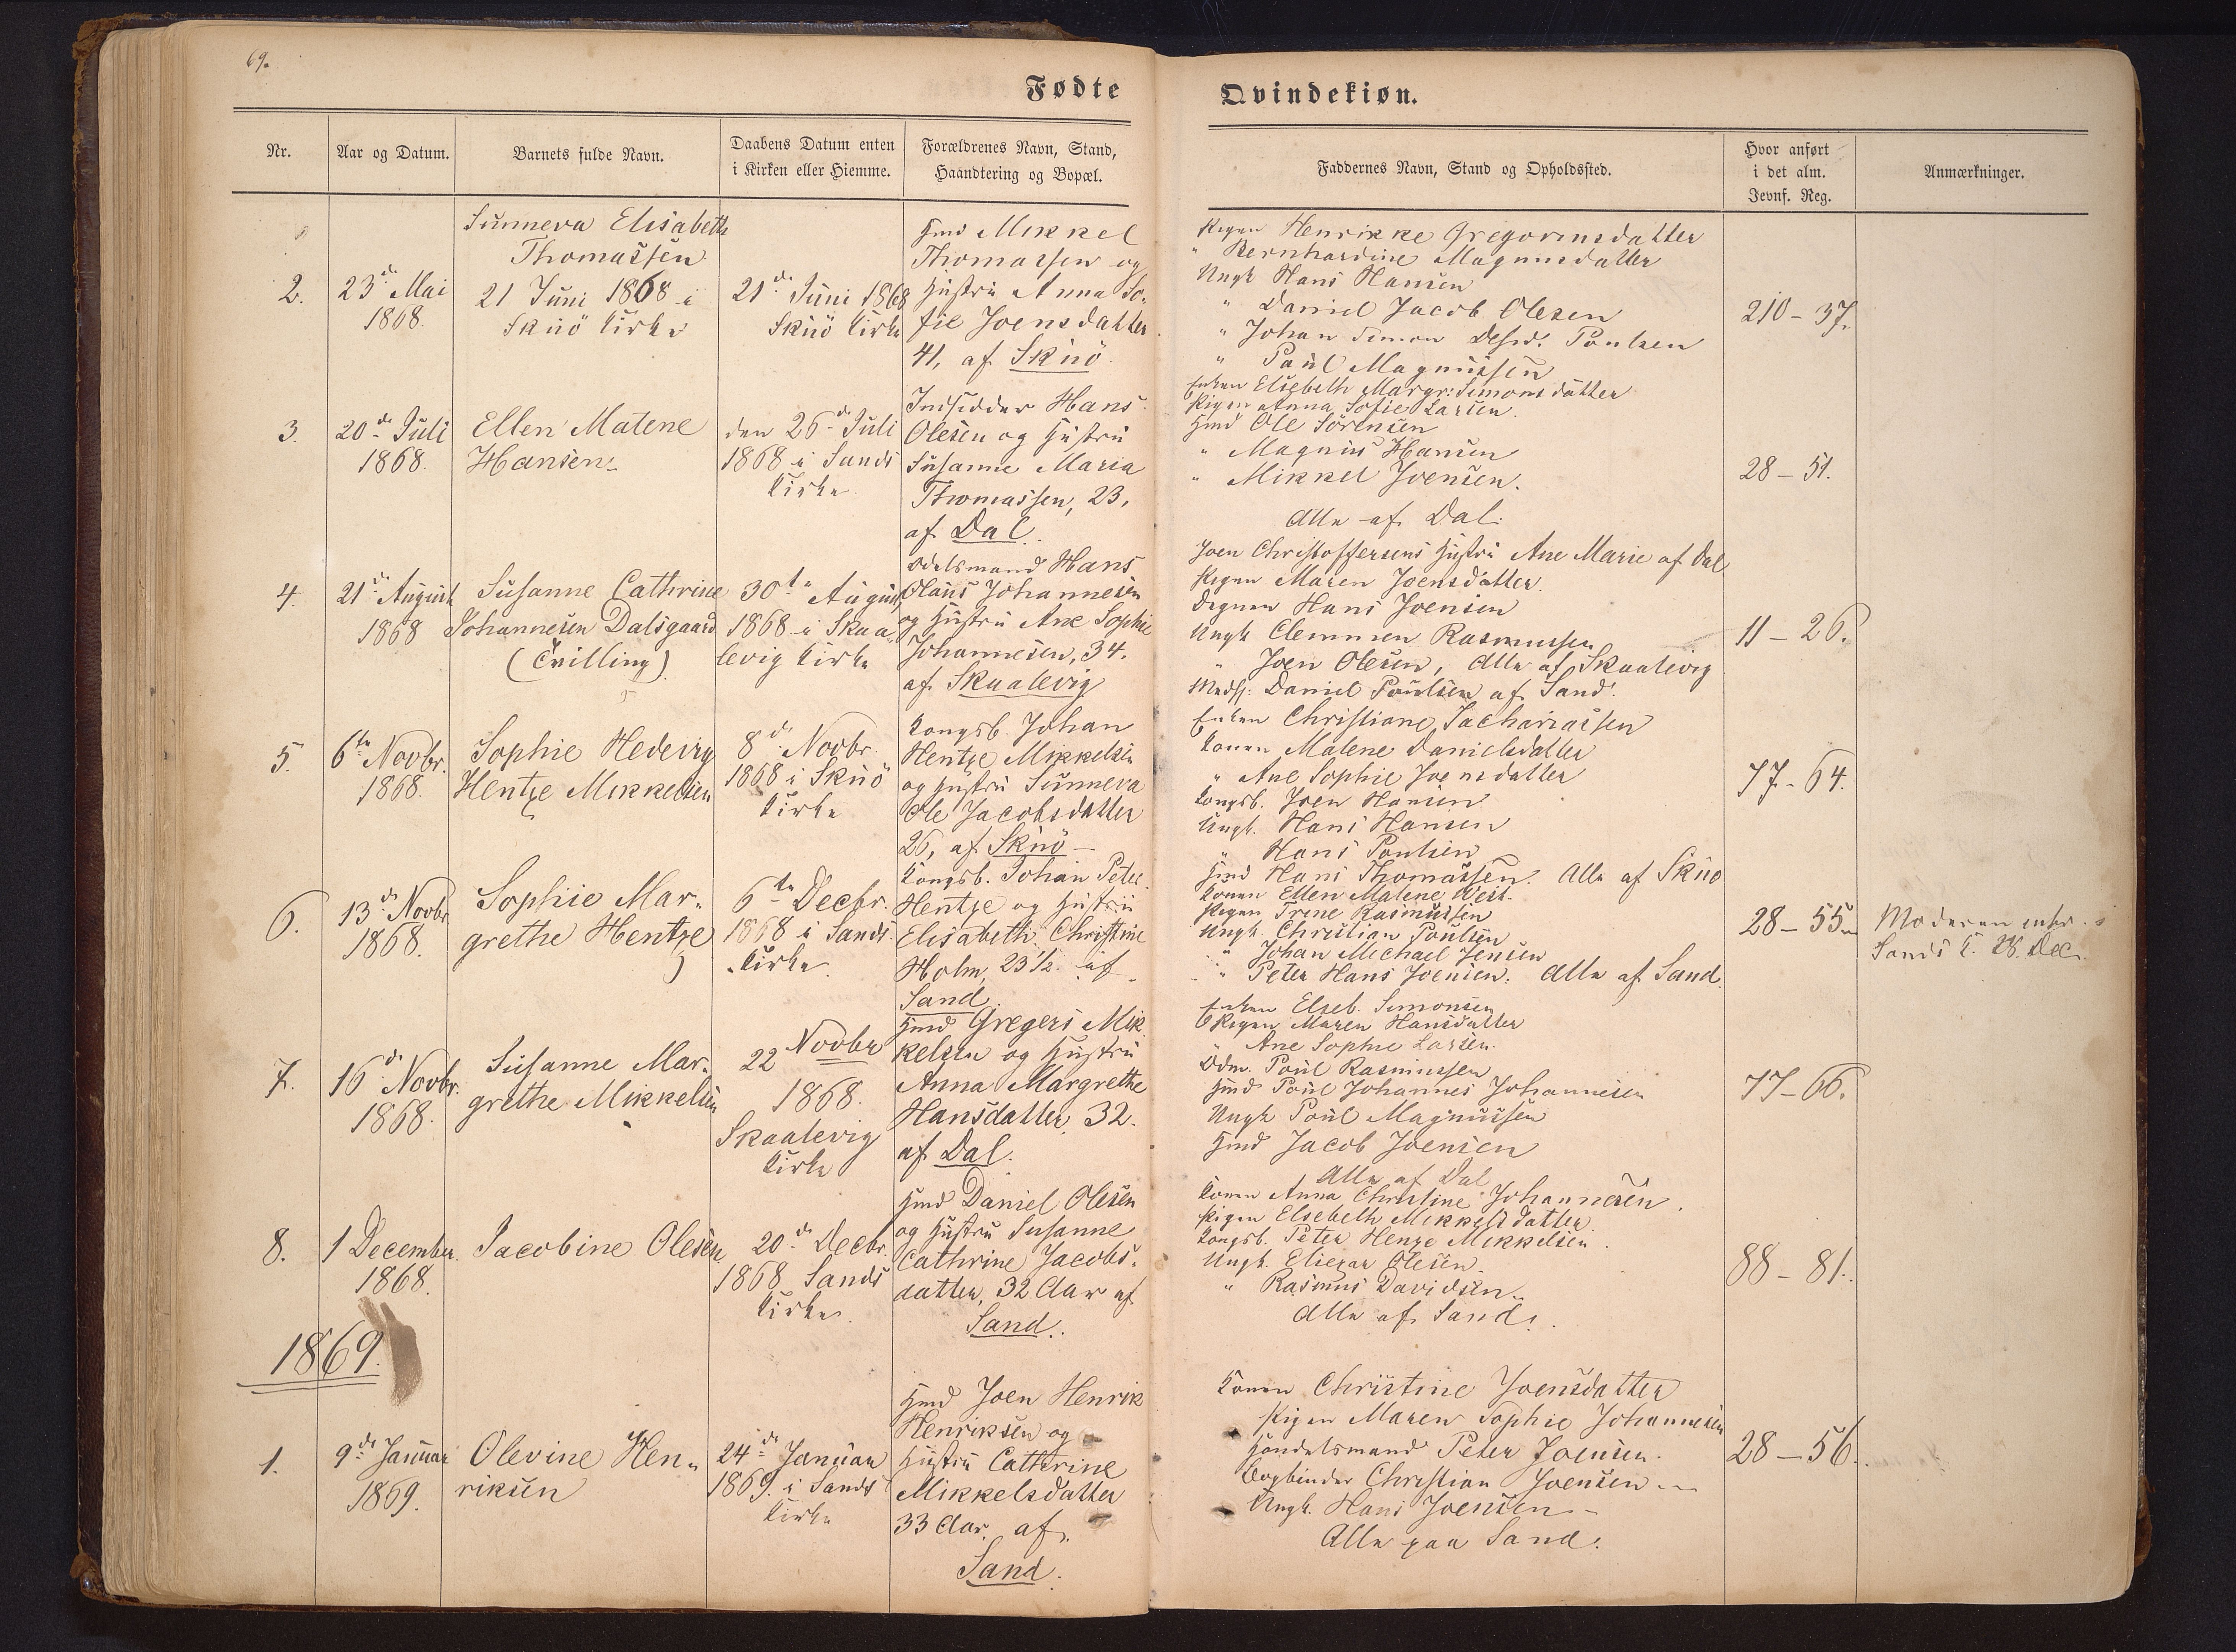 69.
Fødte
Qvindekiøn.
Nr.
Aar og Datum.
Barnets fulde Navn.
Daabens Datum enten
i Kirken eller Hiemme.
Forældrenes Navn, Stand,
Haandtering og Bopæl.
Faddernes Navn, Stand og Opholdssted.
Hvor anført
i det alm.
Jevnf. Reg.
Anmærkninger.
2.
23d. Mai
1868.
Sunneva Elisabeth
Thomassen
21 Juni 1868 i
Skuö Kirke
21d. Juni 1868
Skuö Kirke
Hmd Mikkel
Thomassen og
Hustru Anna So-
fie Joensdatter
41, af Skuö
Pigen Henrikke Gregoriusdatter
" Bernhardine Magnusdatter
Ungk Hans Hansen
" Daniel Jacob Olesen
" Johan Simon Poulsen
" Poul Magnussen
210 - 37.
3.
20d. Juli
1868.
Ellen Malene
Hansen
den 26d. Juli
1868 i Sands
Kirke
Indsidder Hans
Olesen og Hustru
Susanne Maria
Thomassen, 23.
af Dal.
Enken Elsebeth Margr: Simonsdatter
Pigen Anna Sofie Larsen.
Hmd Ole Sörensen
" Magnus Hansen
" Mikkel Joensen.
Alle af Dal.
28 - 51.
4.
21d. August
1868
Susanne Cathrine
Johannesen Dalsgaard
(Tvilling)
30te August
1868 i Skaa-
levig Kirke
Odelsmand Hans
Olaus Johannesen
og Hustru Ane Sophie
Johannesen, 34.
af Skaalevig
Joen Christoffersens Hustru Ane Marie af Dal
Pigen Maren Joensdatter.
Degnen Hans Joensen
Ungk Clemmen Rasmussen
" Joen Olesen, Alle af Skaalevig
Daniel Poulsen af Sand.
11 - 26.
5.
6te Novbr.
1868.
Sophie Hedevig
Hentze Mikkelsen
8d. Novbr.
1868 i Skuö
Kirke
Kongsb. Johan
Hentze Mikkelsen
og Hustru Sunneva
Ole Jacobsdatter
26, af Skuö
Enken Christiane Sachariassen
Konen Malene Danielsdatter
" Ane Sophie Joensdatter
Kongsb. Joen Hansen
Ungk. Hans Hansen
" Hans Poulsen
Hmd Hans Thomassen. Alle af Skuö
77 - 64.
6.
13d. Novbr
1868.
Sophie Mar-
grethe Hentze
6te Decbr.
1868 i Sands
Kirke.
Kongsb. Johan Peter
Hentze og Hustru
Elisabeth Christine
Holm, 23½ af
Sand.
Konen Ellen Malene West.
Pigen Trine Rasmussen
Ungk. Christian Poulsen
" Johan Michael Jensen
" Peter Hans Joensen. Alle af Sand.
28 - 55
Moderen intr. i
Sands K. 26. Dec.
7.
16d. Novbr.
1868.
Susanne Mar-
grethe Mikkelsen
22 Novbr
1868.
Skaalevig
Kirke
Hmd Gregers Mik
kelsen og Hustru
Anna Margrethe
Hansdatter, 32.
af Dal.
Enken Elseb. Simonsen
Pigen Maren Hansdatter
" Ane Sophie Larsen.
Odm. Poul Rasmussen
Hmd Poul Johannes Johannesen
Ungk Poul Magnussen
Hmd Jacob Joensen
Alle af Dal
77 - 66.
8.
1 December
1868.
Jacobine Olesen
20d. Decbr.
1868 Sands
Kirke.
Hmd Daniel Olesen
og Hustru Susanne
Cathrine Jacobs-
datter, 32 Aar af
Sand.
Konen Anna Christine Johannesen.
Pigen Elsebeth Mikkelsdatter.
Kongsb. Peter Henze Mikkelsen.
Ungk. Eliezar Olesen.
" Rasmus Davidsen.
Alle af Sand.
88 - 81.
1869.
1.
9de Januar
1869.
Olevine Hen-
riksen
24d. Januar
1869. i Sands
Kirke
Hmd Joen Henrik
Henriksen og
Hustru Cathrine
Mikkelsdatter
33 Aar. af
Sand.
Konen Christine Joensdatter
Pigen Maren Sophie Johannesen
Handelsmand Peter Joensen.
Bogbinder Christian Joensen
Ungk. Hans Joensen
Alle paa Sand.
28 - 56.